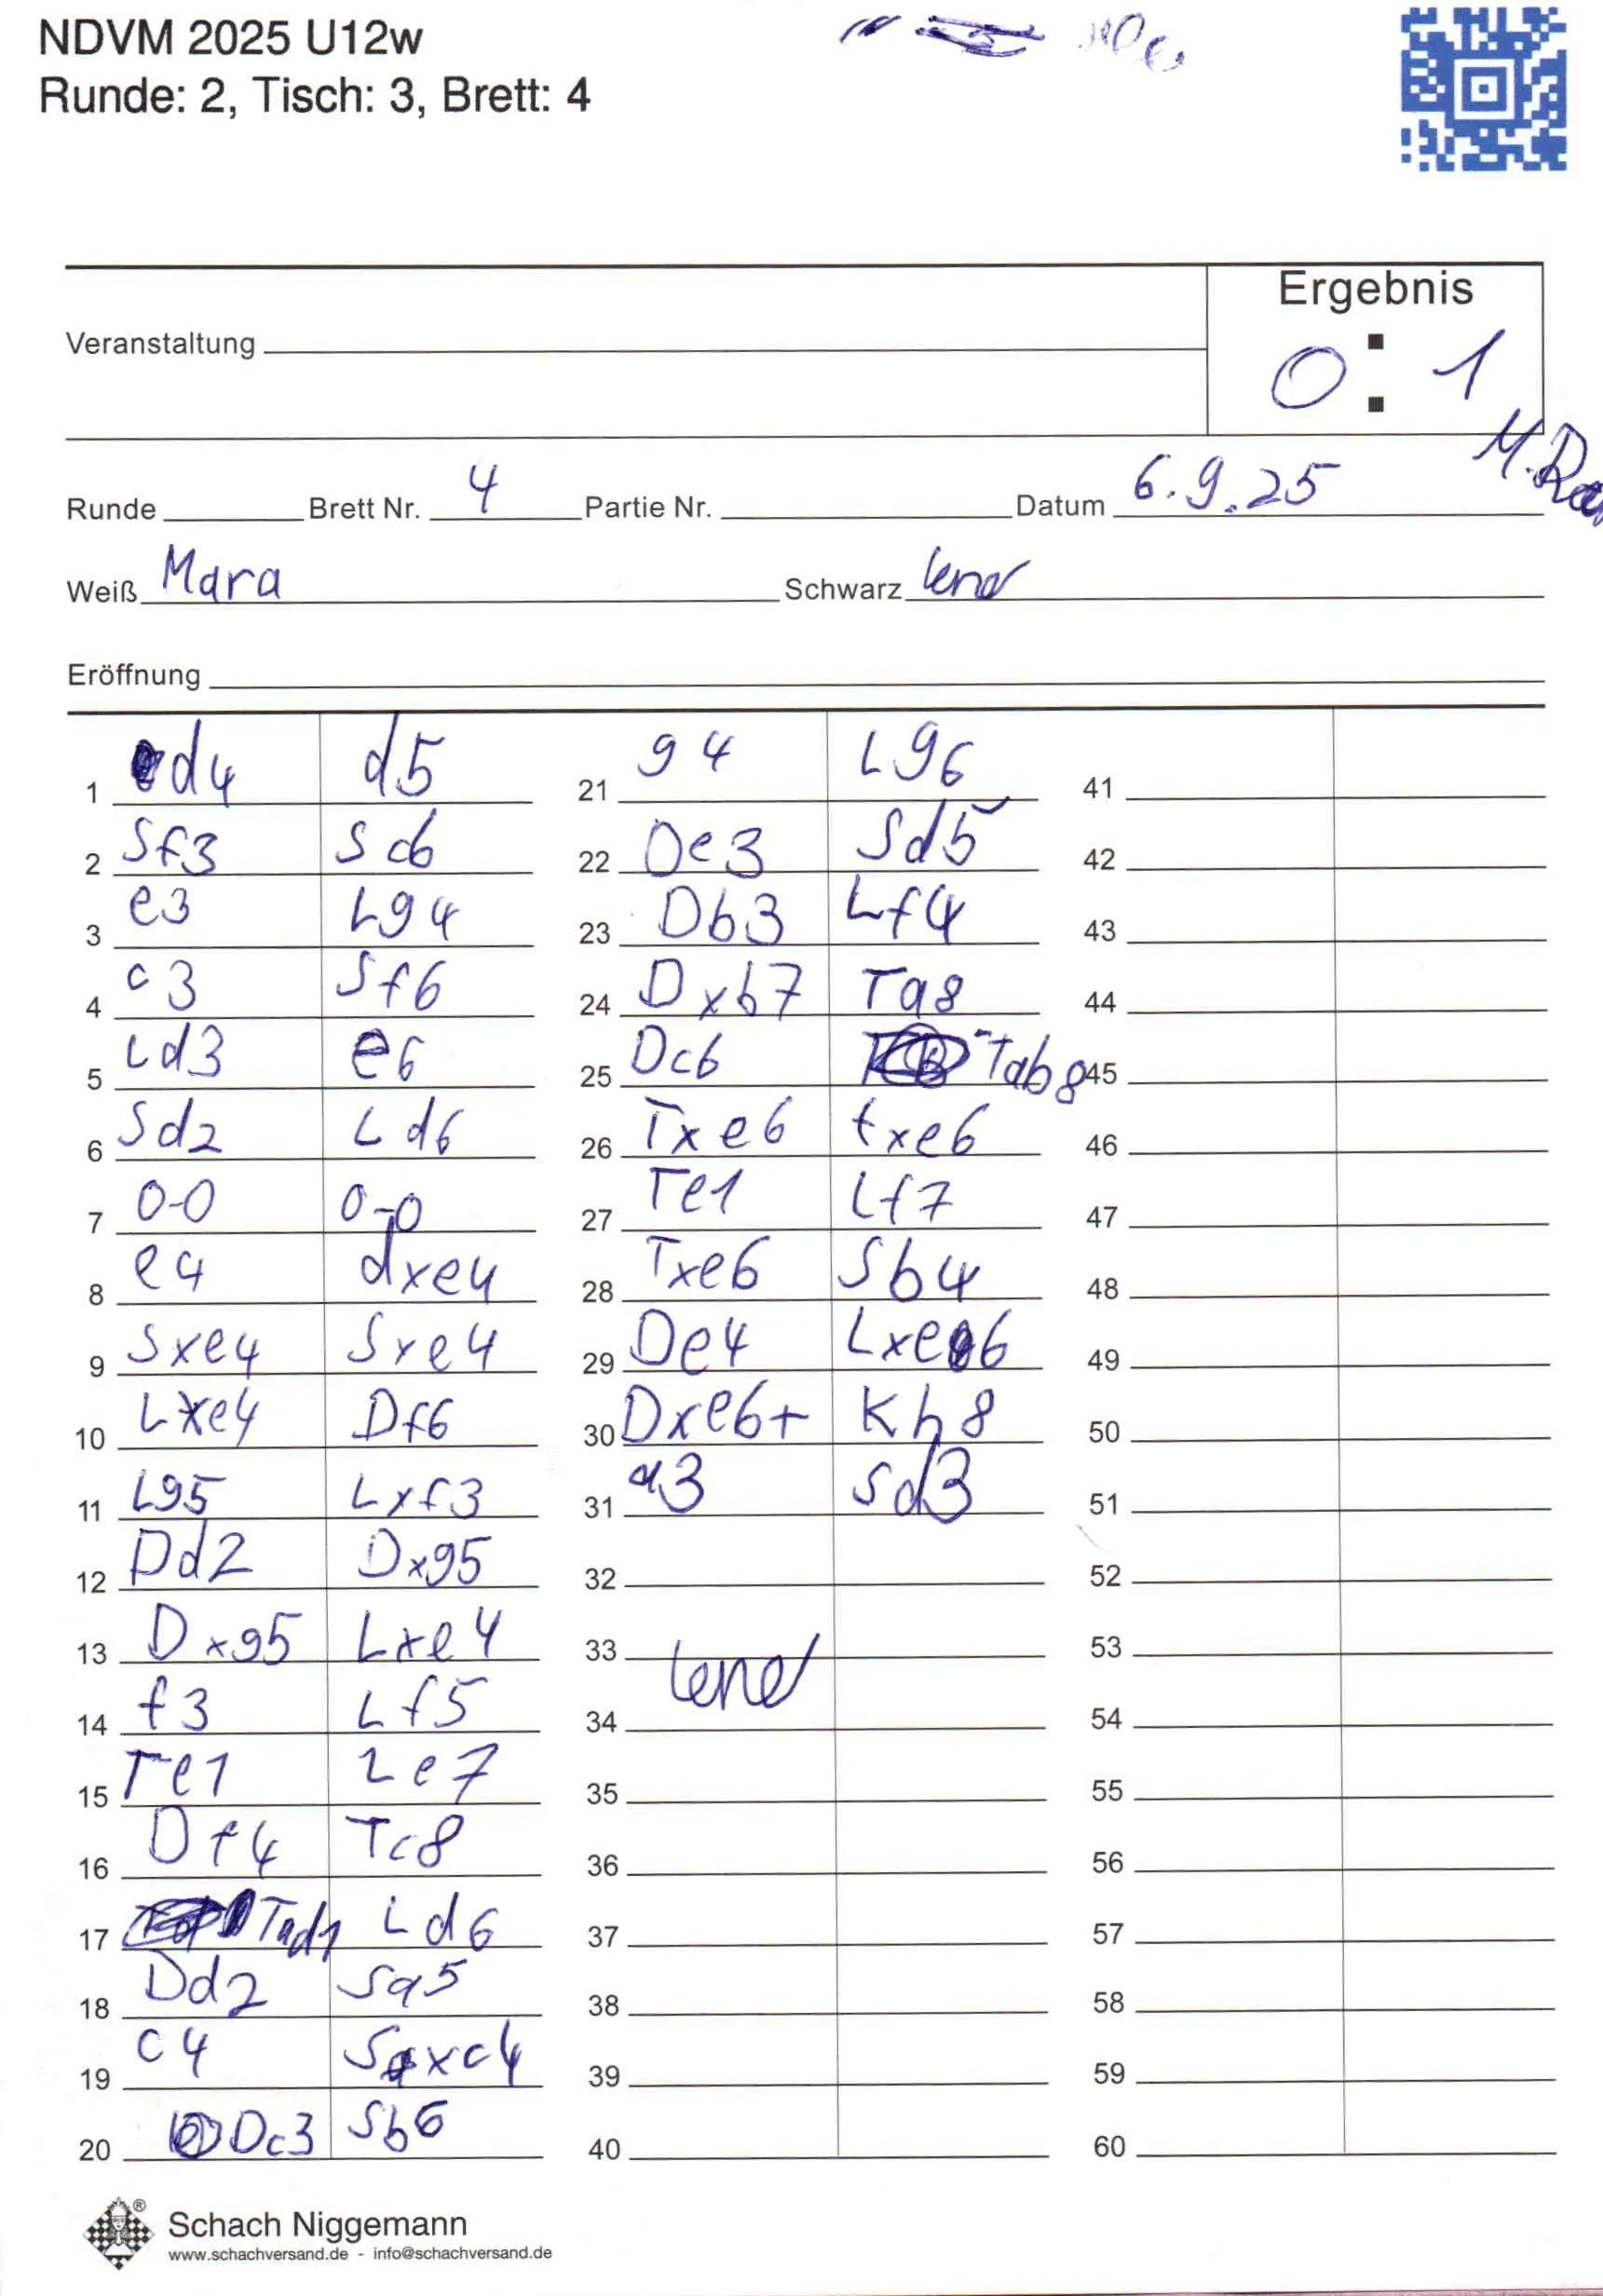 NDVM 2025 U12w
Runde: 2, Tisch: 3, Brett: 4
Ergebnis
Veranstaltung
0 : 1
Runde Brett Nr. 4 Partie Nr. Datum 6.9.25
Weiß Mara Schwarz
Eröffnung
1 d4 d5
2 Sf3 Sc6
3 e3 Lg4
4 c3 Sf6
5 Ld3 e6
6 Sd2 Ld6
7 0-0 0-0
8 e4 dxe4
9 Sxe4 Sxe4
10 Lxe4 Df6
11 Lg5 Lxf3
12 Dd2 Dxg5
13 Dxg5 Lxe4
14 f3 Lf5
15 Te1 Le7
16 Df4 Tc8
17 Tad1 Ld6
18 Dd2 Sa5
19 c4 Sxc4
20 Dc3 Sb6
21 g4 Lg6
22 De3 Sd5
23 Db3 Lf4
24 Dxb7 Ta8
25 Dc6 Tab8
26 Txe6 txe6
27 Te1 Lf7
28 Txe6 Sb4
29 De4 Lxe6
30 Dxe6+ Kh8
31 a3 Sd3
32
33
34
35
36
37
38
39
40
41
42
43
44
45
46
47
48
49
50
51
52
53
54
55
56
57
58
59
60
Schach Niggemann
www.schachversand.de - info@schachversand.de